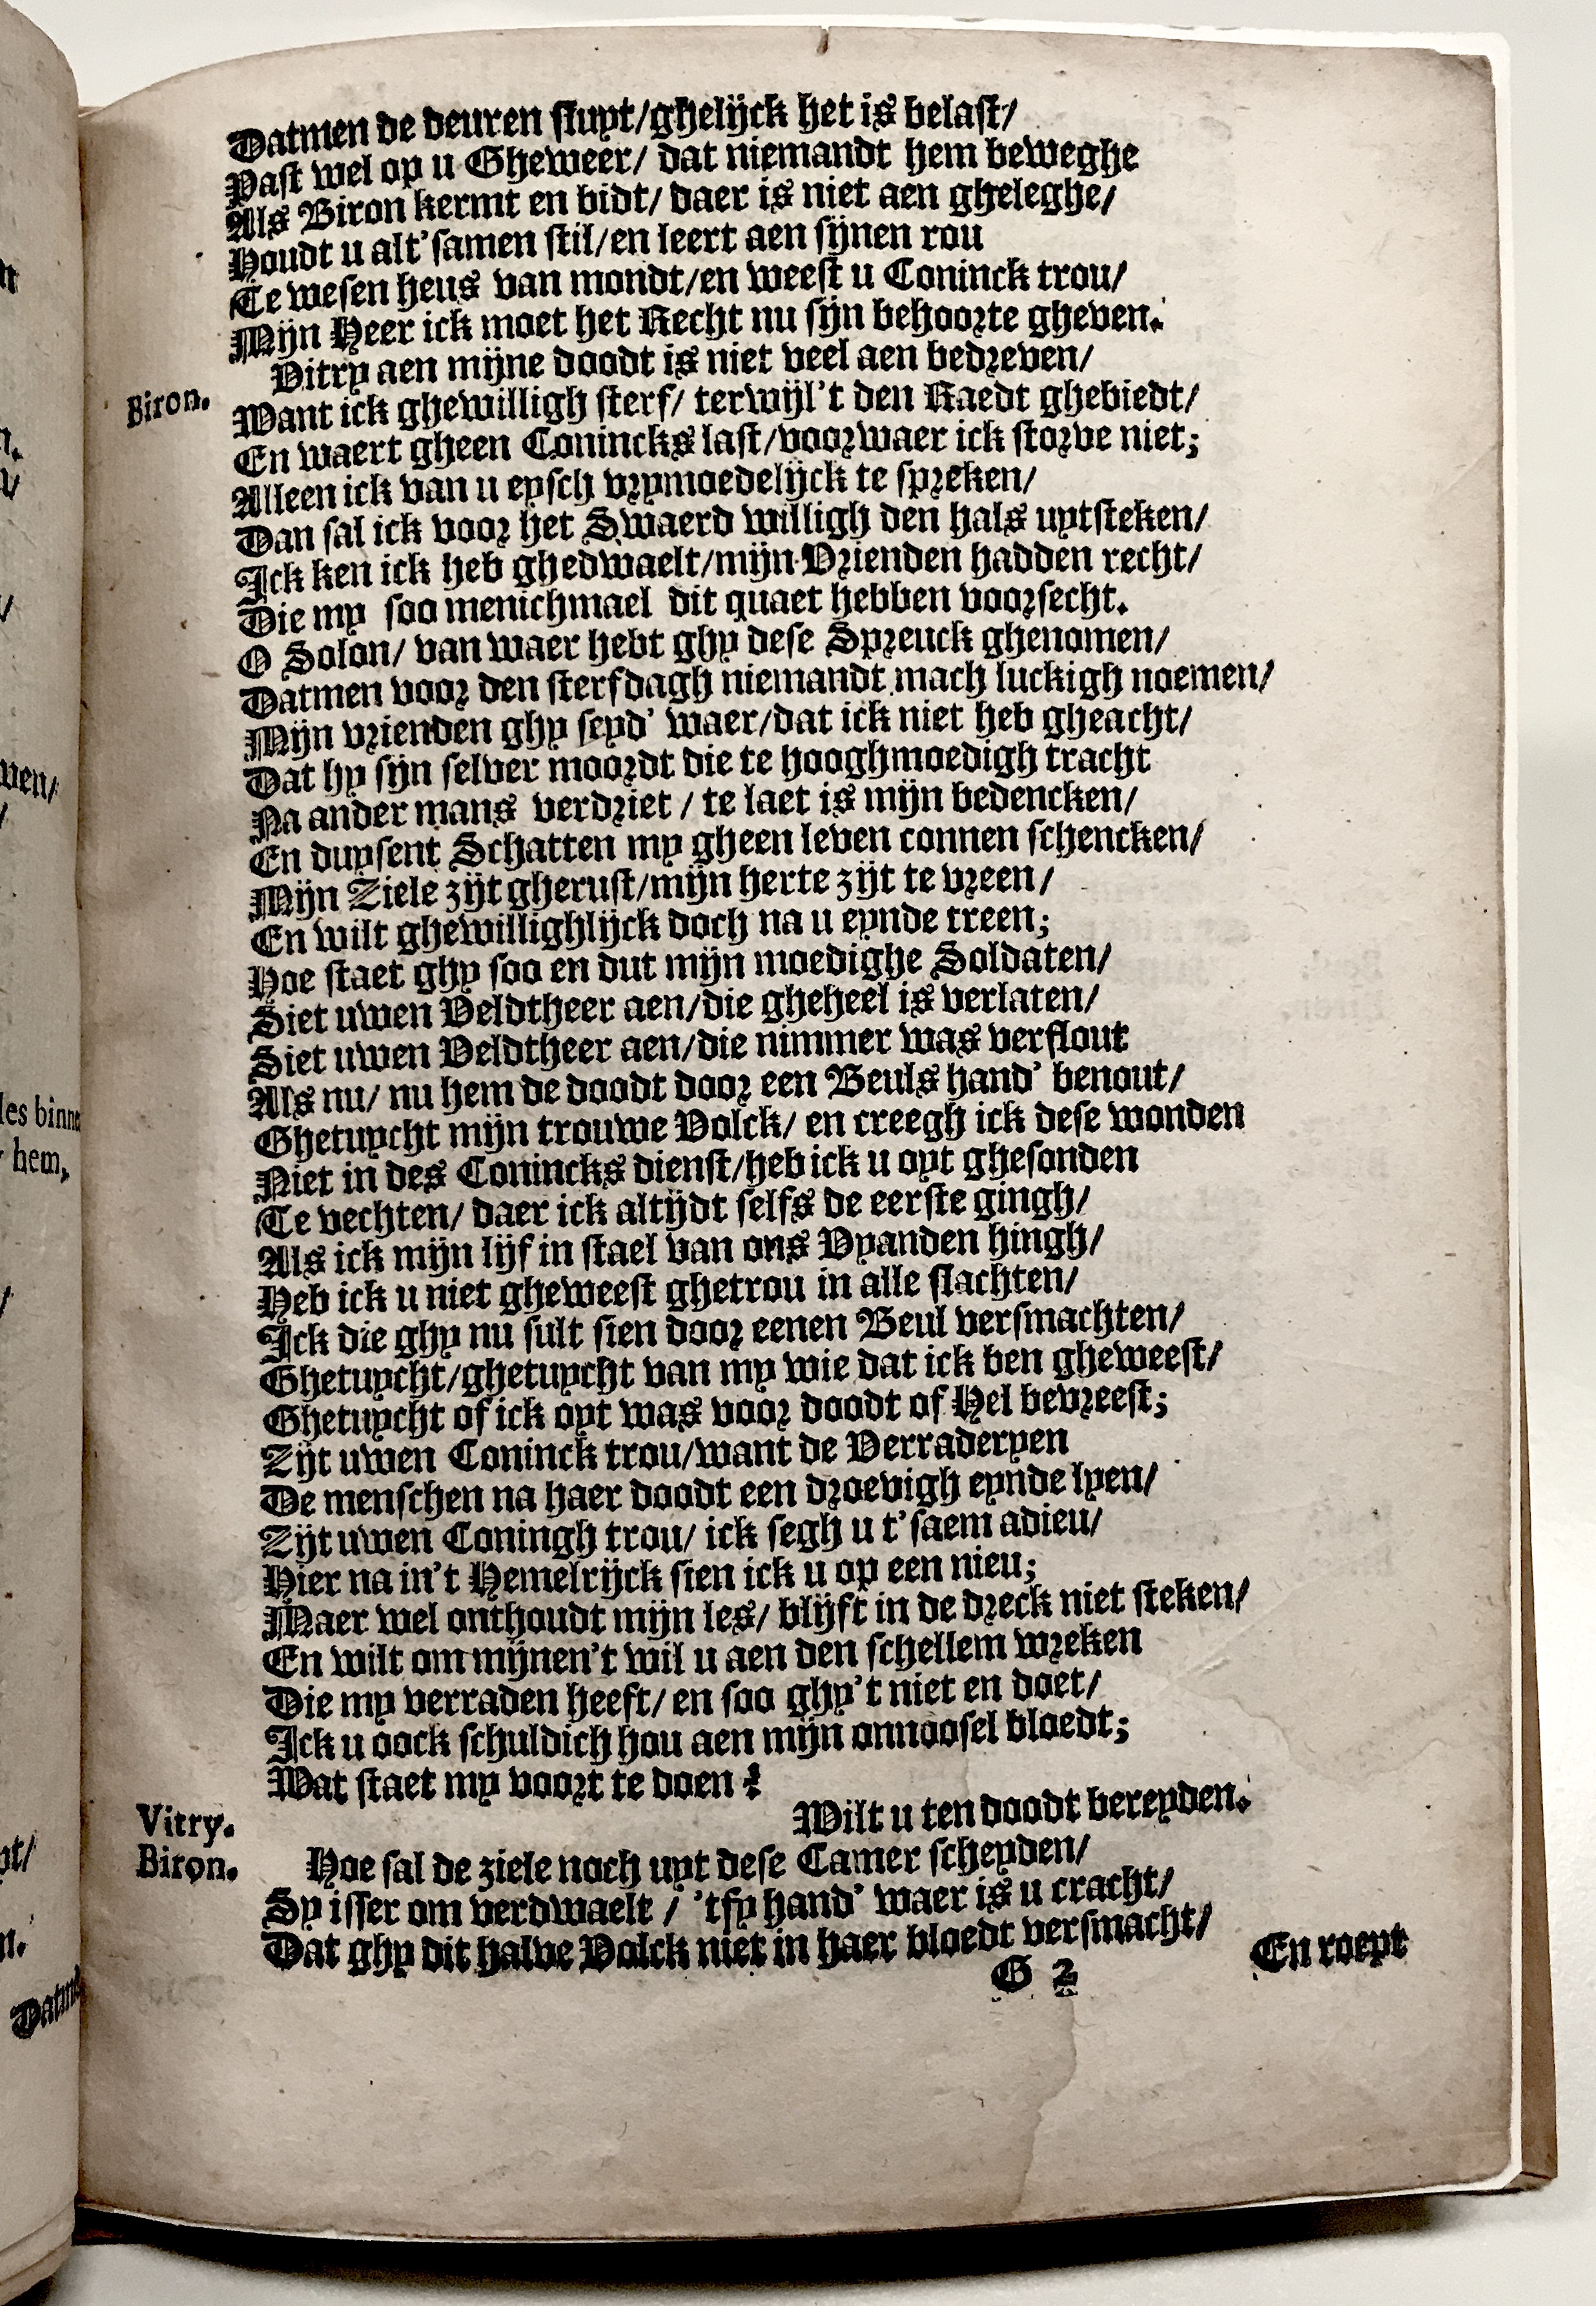 Datmen de deuren sluyt/ghelijck het is belast/
Past wel op u Gheweer/ dat niemandt hem beweghe
Als Biron kermt en bidt/ daer is niet aen gheleghe/
Houdt u alt'samen stil/en leert aen sijnen rou
Te wesen heus van mondt/en weest u Coninck trou/
Mijn Heer ick moet het Recht nu sijn behoorte gheven.
Biron. Vitry aen mijne doodt is niet veel aen bedreven/
Want ick ghewilligh sterf/ terwijl't den Raedt ghebiedt/
En waert gheen Conincks last/voorwaer ick storve niet;
Alleen ick van u eysch vrymoedelijck te spreken/
Dan sal ick voor het Swaerd willigh den hals uytsteken/
Ick ken ick heb ghedwaelt/mijn Vrienden hadden recht/
Die my soo menichmael dit quaet hebben voorsecht.
O Solon/ van waer hebt ghy dese Spreuck ghenomen/
Datmen voor den sterfdagh niemandt mach luckigh noemen/
Mijn vrienden ghy seyd' waer/dat ick niet heb gheacht/
Dat hy sijn selver moordt die te hooghmoedigh tracht
Na ander mans verdriet / te laet is mijn bedencken/
En duysent Schatten my gheen leven connen schencken/
Mijn Ziele zijt gherust/mijn herte zijt te vreen/
En wilt ghewillighlijck doch na u eynde treen;
Hoe staet ghy soo en dut mijn moedighe Soldaten/
Siet uwen Veldtheer aen/die gheheel is verlaten/
Siet uwen Veldtheer aen/die nimmer was verflout
Als nu/ nu hem de doodt door een Beuls hand' benout/
Ghetuycht mijn trouwe Volck/ en creegh ick dese wonden
Niet in des Conincks dienst/heb ick u oyt ghesonden
Te vechten/ daer ick altijdt selfs de eerste gingh/
Als ick mijn lijf in stael van ons Vyanden hingh/
Heb ick u niet gheweest ghetrou in alle slachten/
Ick die ghy nu sult sien door eenen Beul versmachten/
Ghetuycht/ghetuycht van my wie dat ick ben gheweest/
Ghetuycht of ick oyt was voor doodt of Hel bevreest;
Zijt uwen Coninck trou/want de Verraderyen
De menschen na haer doodt een droevigh eynde lyen/
Zijt uwen Coningh trou/ ick segh u t'saem adieu/
Hier na in't Hemelrijck sien ick u op een nieu;
Maer wel onthoudt mijn les/ blijft in de dreck niet steken/
En wilt om mijnen't wil u aen den schellem wreken
Die my verraden heeft/ en soo ghy't niet en doet/
Ick u oock schuldich hou aen mijn onnoosel bloedt;
Wat staet my voort te doen?
Vitry. Wilt u ten doodt bereyden.
Biron. Hoe sal de ziele noch uyt dese Camer scheyden/
Sy isser om verdwaelt / 'tfy hand' waer is u cracht/
Dat ghy dit halve Volck niet in haer bloedt versmacht/
G 2 En roept
les binne
hem,